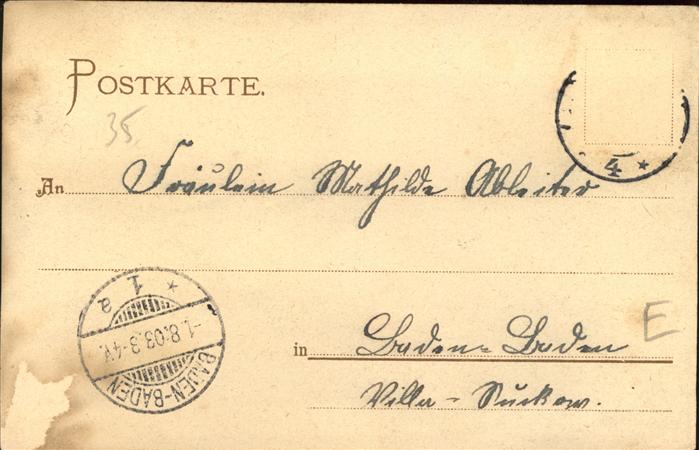 POSTKARTE.
35.
4 *
An Fräulein Mathilde Ableiter
* 1 a
-1.8.03.3-4V.
BADEN-BADEN
in Baden-Baden
Villa - Suckow.
E